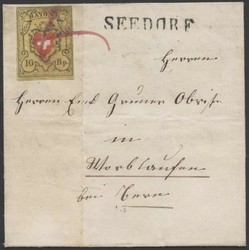 SEEDORF
RAYON
10 Rp.
Herren
Herren Emil Gruner Obrist
in
Worblaufen
bei Bern